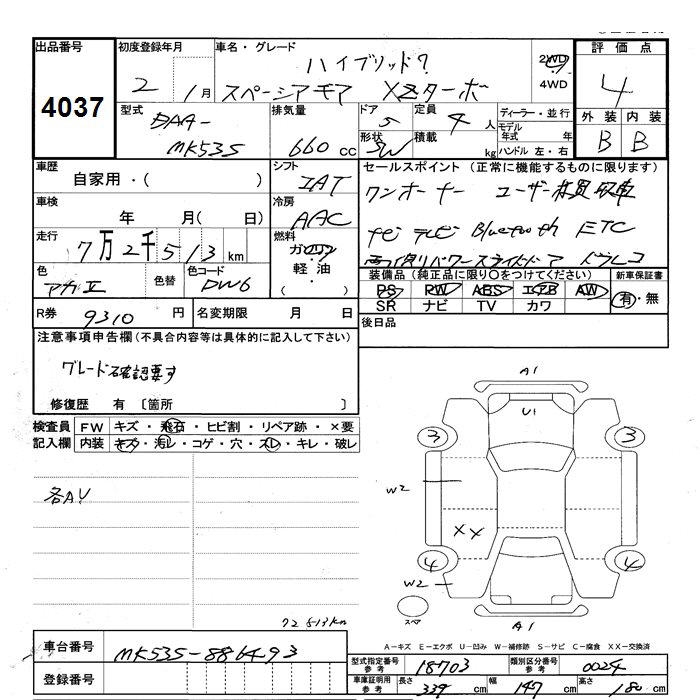 出品番号
4037
初度登録年月
2 1月
車名・グレード
ハイブリッド?
スペーシアギア XZターボ
2WD
4WD
評価点
4
外装 内装
B B
型式
DAA-
MK53S
排気量
660 cc
ドア
5
形状
SW
定員
4 人
積載 kg
ディーラー・並行
モデル年式 年
ハンドル 左・右
車歴
自家用・( )
車検
年 月( 日)
走行
7万2千513km
色
アカⅡ
色替
色コード
DW6
シフト
IAT
冷房
AAC
燃料
ガソリン
軽油・
( )
セールスポイント(正常に機能するものに限ります)
ワンオーナー ユーザー様買取車
ナビ テレビ Bluetooth ETC
両側パワースライドドア ドラレコ
装備品(純正品に限り〇をつけてください)
PS RW ABS エアB AW
SR ナビ TV カワ
新車保証書
有・無
R券 9310 円
名変期限 月 日
後日品
注意事項申告欄(不具合内容等は具体的に記入して下さい)
グレード確認要す
修復歴 有〔箇所 〕
検査員
記入欄
FW キズ・飛石・ヒビ割・リペア跡・×要
内装 キズ・汚レ・コゲ・穴・スレ・キレ・破レ
各AU
72513km
A1
U1
3 3
W2
XX
4 4
W2
スペア
A1
A-キズ E-エクボ U-凹み W-補修跡 S-サビ C-腐食 XX-交換済
車台番号 MK53S-886493
登録番号
型式指定番号
参考
18703
類別区分番号
参考
0024
車庫証明用
参考
長さ 339 cm 幅 147 cm 高さ 180 cm